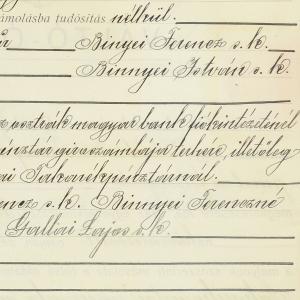 ámolásba tudósítás nélkül.
Binyei Ferencz s. k.
Binnyei István s. k.
osztrák magyar bank fiókintézeténél
pénztár giroszámlája terhére, illetőleg
Takarékpénztárnál.
encz s. k. Binnyei Ferenczné
Gallai Lajos s. k.